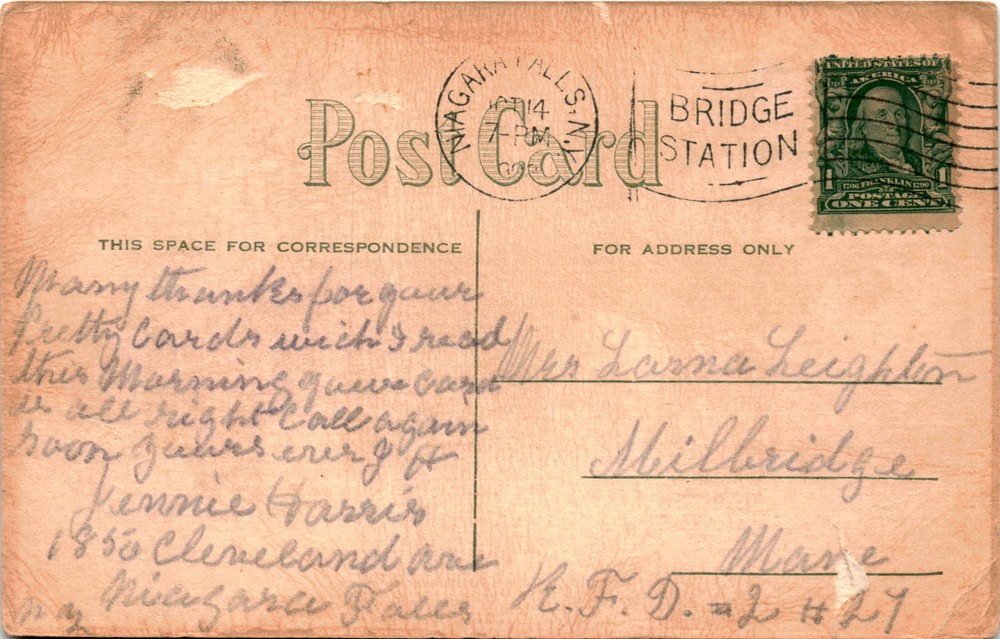 Post Card
NIAGARA FALLS, N.Y.
OCT 14
7-PM
BRIDGE
STATION
UNITED STATES OF
AMERICA
1 1706 FRANKLIN 1790 1
POSTAGE
ONE CENT
THIS SPACE FOR CORRESPONDENCE
FOR ADDRESS ONLY
Many thanks for your
Pretty Cards wich I read
this Morning your Card
is all right Call again
soon yours ever
Jennie Harris
1850 Cleveland ave
Niagara Falls
N Y
Mrs Lorna Leighton
Milbridge
Mane
R. F. D. = 2 # 27